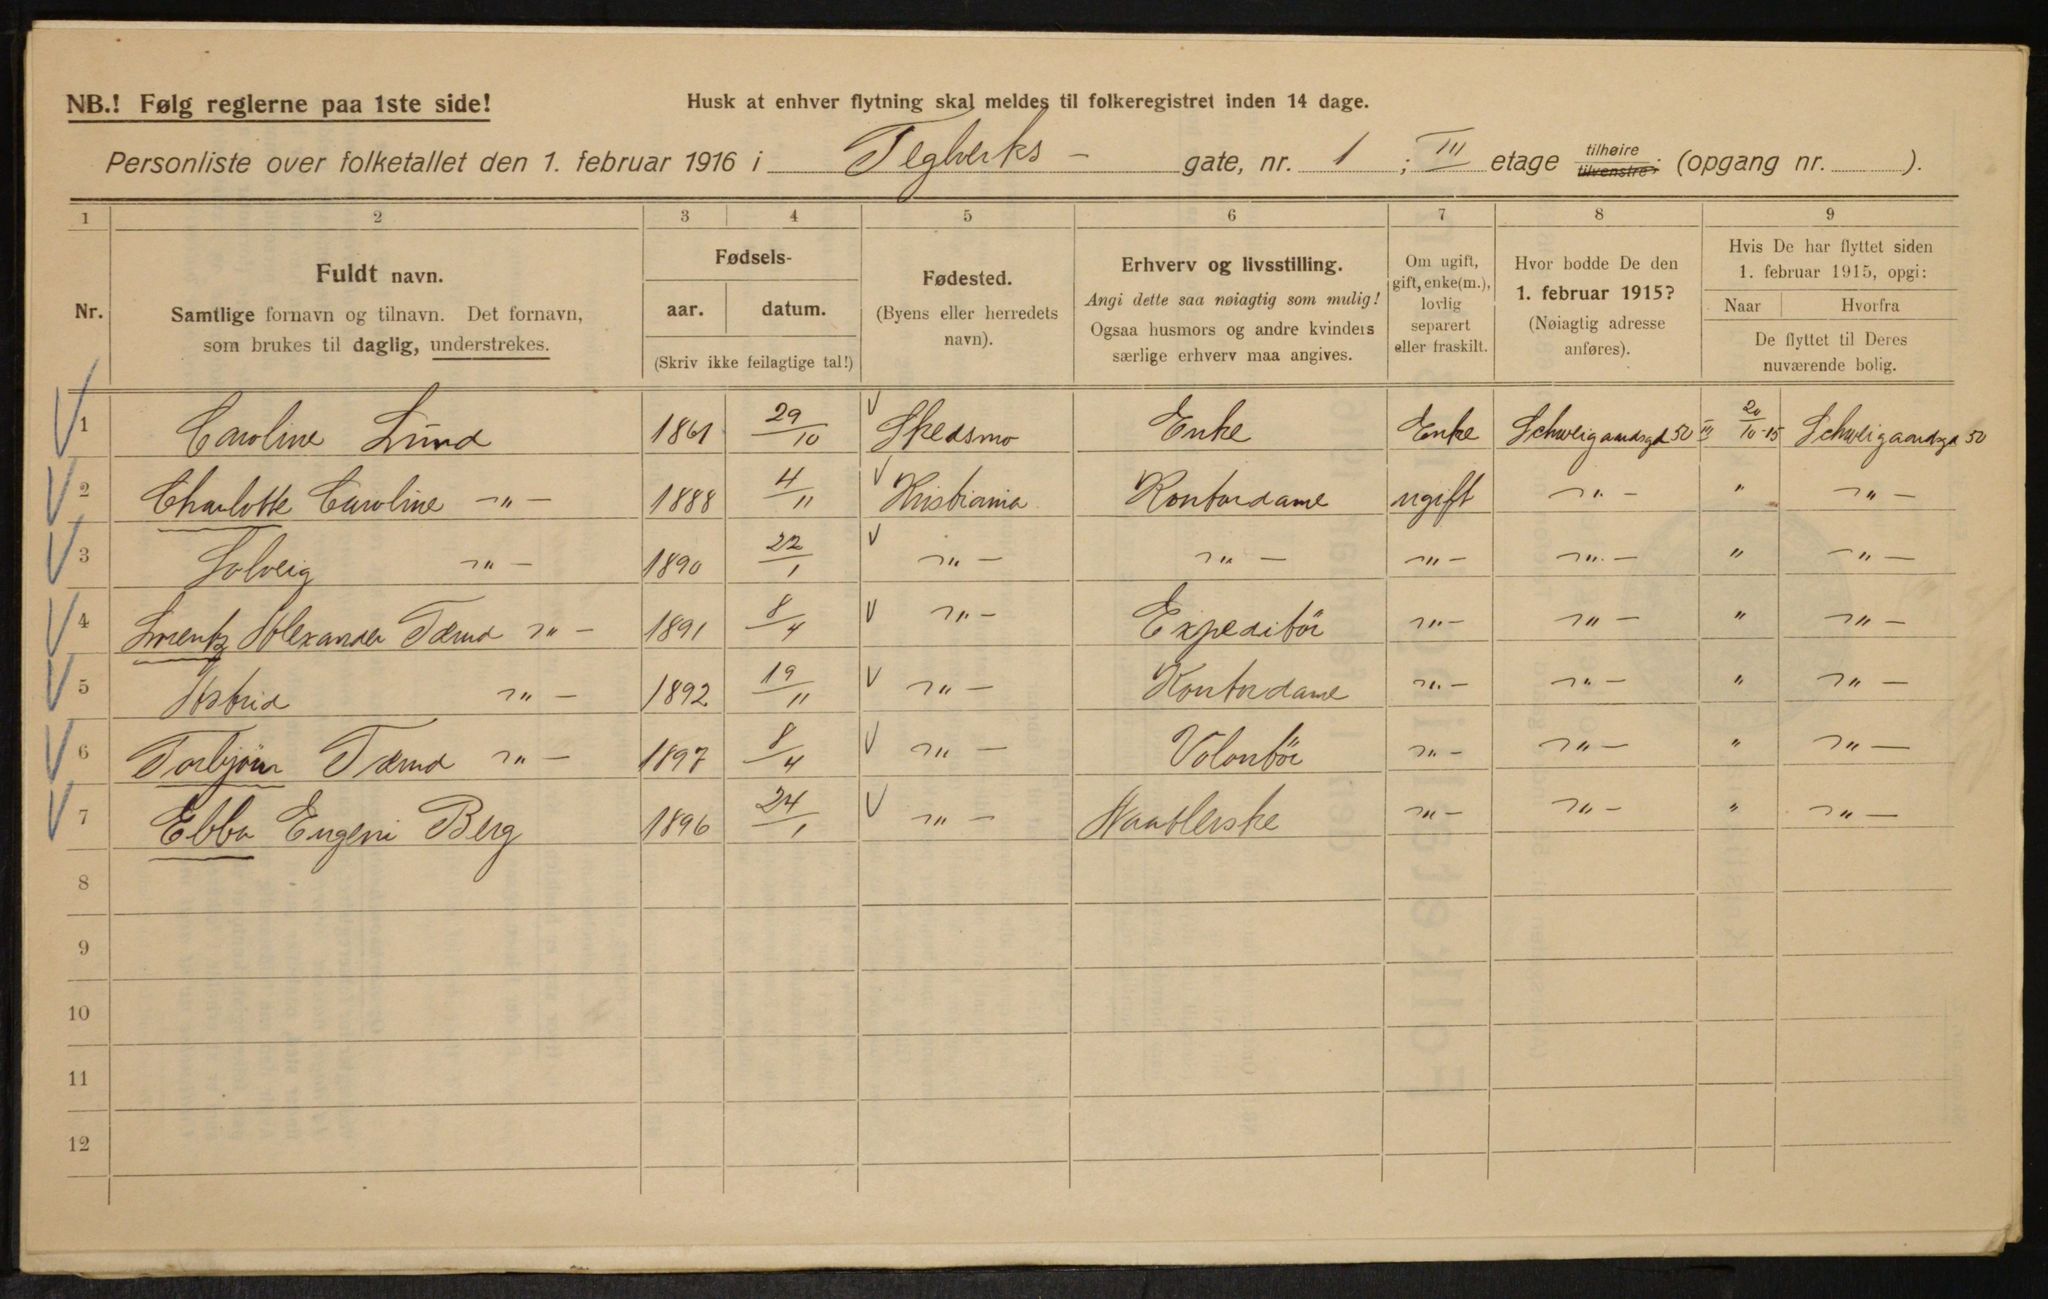 NB.! Følg reglerne paa 1ste side!
Husk at enhver flytning skal meldes til folkeregistret inden 14 dage.
Personliste over folketallet den 1. februar 1916 i Teglverks - gate, nr. 1 ; III etage tilhøire tilvenstre; (opgang nr. ).
1 2 3 4 5 6 7 8 9
Nr.
Fuldt navn.
Samtlige fornavn og tilnavn. Det fornavn,
som brukes til daglig, understrekes.
Fødsels-
aar. datum.
(Skriv ikke feilagtige tal!)
Fødested.
(Byens eller herredets
navn).
Erhverv og livsstilling.
Angi dette saa nøiagtig som mulig!
Ogsaa husmors og andre kvinders
særlige erhverv maa angives.
Om ugift,
gift, enke(m.),
lovlig
separert
eller fraskilt.
Hvor bodde De den
1. februar 1915?
(Nøiagtig adresse
anføres).
Hvis De har flyttet siden
1. februar 1915, opgi:
Naar Hvorfra
De flyttet til Deres
nuværende bolig.
1 Caroline Lund 1861 29/10 Skedsmo Enke Enke Schweigaardsgd 50 III 20/10-15 Schweigaardsgd 50
2 Charlotte Caroline -"- 1888 4/11 Kristiania Kontordame ugift -"- " -"-
3 Solveig -"- 1890 22/1 -"- -"- -"- -"- " -"-
4 Lorentz Alexander Tærud -"- 1891 8/4 -"- Expeditör -"- -"- " -"-
5 Astrid -"- 1892 19/11 -"- Kontordame -"- -"- " -"-
6 Torbjörn Tærud -"- 1897 8/4 -"- Volontör -"- -"- " -"-
7 Ebba Eugeni Berg 1896 24/1 -"- Naatlerske -"- -"- " -"-
8
9
10
11
12